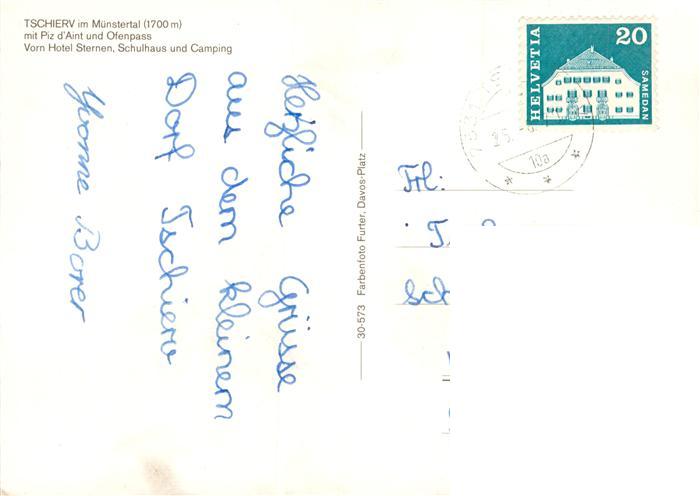 TSCHIERV im Münstertal (1700 m)
mit Piz d'Aint und Ofenpass
Vorn Hotel Sternen, Schulhaus und Camping
Herzliche Grüsse
aus dem kleinem
Dorf Tschierv
Yvonne Borer
30-573 Farbenfoto Furter, Davos-Platz
HELVETIA
20
SAMEDAN
10a
Frl: